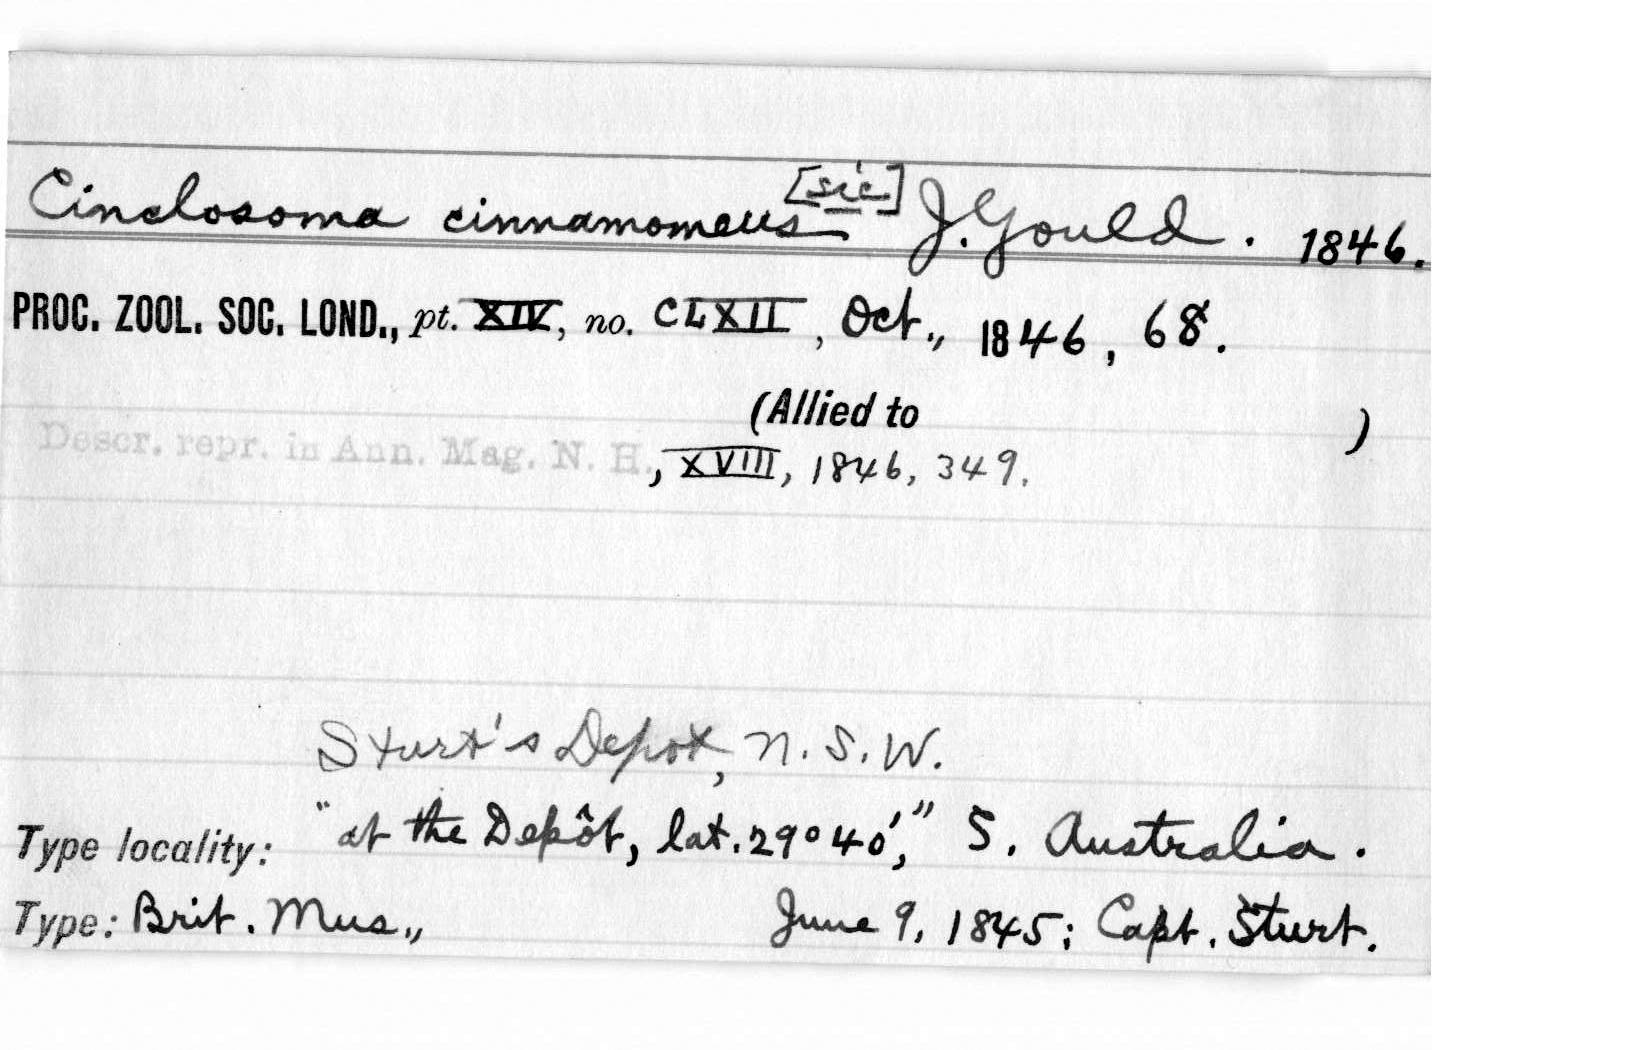 Cinclosoma cinnamomeus [sic] J. Gould. 1846.
PROC. ZOOL. SOC. LOND., pt. XIV, no. CLXII, Oct., 1846, 68.
(Allied to )
Descr. repr. in Ann. Mag. N. H., XVIII, 1846, 349.
Sturt's Depot, N. S. W.
Type locality: "at the Depôt, lat. 29° 40'," S. Australia.
Type: Brit. Mus., June 9, 1845; Capt. Sturt.